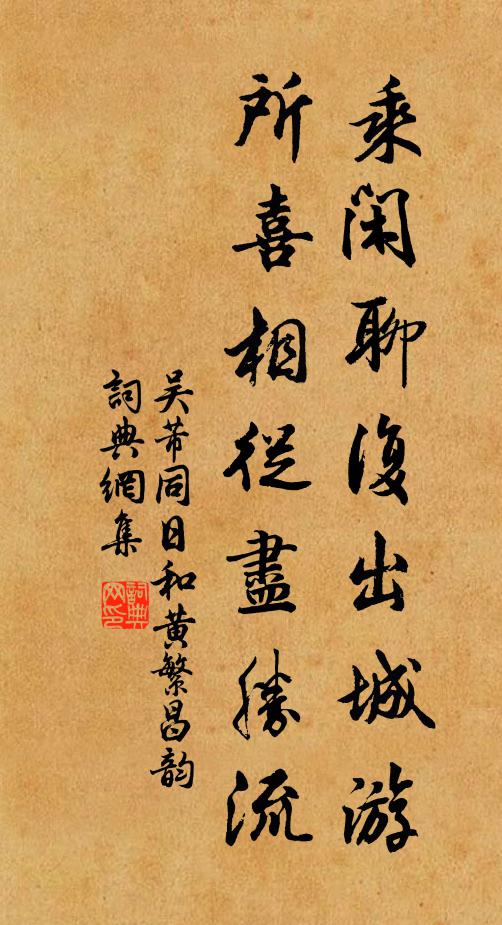 乘閑聊復出城游
所喜相從盡勝流
吴芾同日和黄繁昌韵
詞典網集
詞典
网印